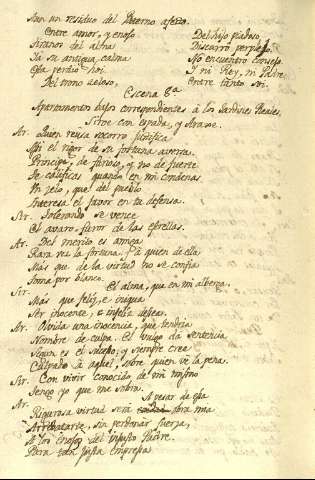 Aun un residuo del Paterno afecto.
Entre amor, y enojo
Tirano del alma
Ya su antigua calma
Esta perdió hoi.
Del trono zeloso,
Del hijo piadoso,
Discurro perplejo,
No encuentro consejo
Y ni Rey, ni Padre,
Entre tanto soi.
Escena 8.a
Apartamentos bajos correspondientes á los Jardines Reales.
Siroe con espada, y Arasse.
Ar. Quien reusa socorro justifica
Asi el rigor de su fortuna aversa.
Principe, de furioso, y no de fuerte
Te calificas quando en mi condenas
Un zelo, que del pueblo
Interesa el favor en tu defensa.
Sir. Tolerando se vence
El avaro furor de las estrellas.
Ar. Del merito es amiga
Rara vez la fortuna. Y á quien de ella
Más que de la virtud no se confia
Toma por blanco.
Sir. El alma, que en mi alberga,
Más que feliz, e iniqua
Ser inocente, e infeliz desea.
Ar. Olvida una inocencia, que tendria
Nombre de culpa. El vulgo da sentencia
Segun es el suceso, y siempre cree
Culpado á aquel, sobre quien ve la pena.
Sir. Con vivir conocido de mi mismo
Tengo yo que me sobra.
Ar. A pesar de esta
Rigurosa virtud será obra mia
Arrebatarte, sin perdonar fuerza,
A los enojos del injusto Padre.
Para tan justa empresa